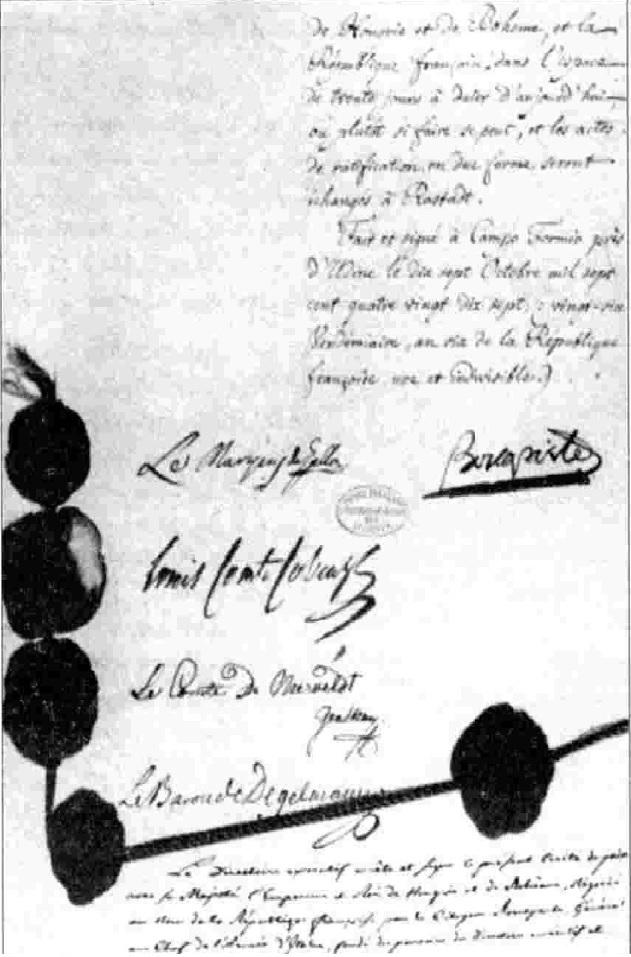 de Hongrie et de Bohême, et la
République française, dans l'espace
de trente jours à dater d'aujourd'hui
ou plutôt si faire se peut, et les actes
de ratification en due forme seront
échangés à Rastadt.
Fait et signé à Campo Formio près
d'Udine le dix sept Octobre mil sept
cent quatre vingt dix sept; vingt-six
Vendémiaire, an six de la République
française, une et indivisible.
Le Marquis de Gallo
Bonaparte
Louis Comte Cobenzl
Le Comte de Merveldt
Le Baron de Degelmann
Le Directoire exécutif arrête et signe le présent Traité de paix
avec Sa Majesté l'Empereur et Roi de Hongrie et de Bohême, négocié
au Nom de la République française par le Citoyen Bonaparte, Général
en Chef de l'Armée d'Italie, fondé de pouvoirs du Directoire exécutif et